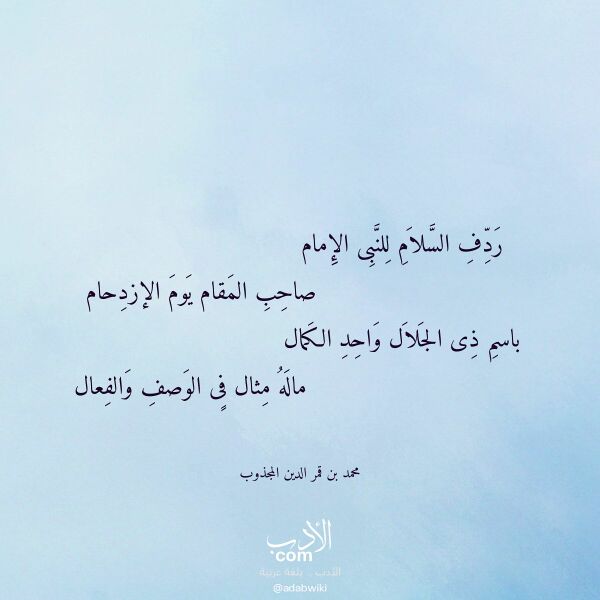 رَدِّفِ السَّلاَمِ لِلنَّبِى الإِمام
صاحِبِ المَقام يَومَ الإزدِحام
باسمِ ذِى الجَلَال وَاحِدِ الكَمال
مالَهُ مِثال فىِ الوَصفِ وَالفِعال
محمد بن قمر الدين المجذوب
الأدب
com
الأدب .. بلغة عربية
@adabwiki